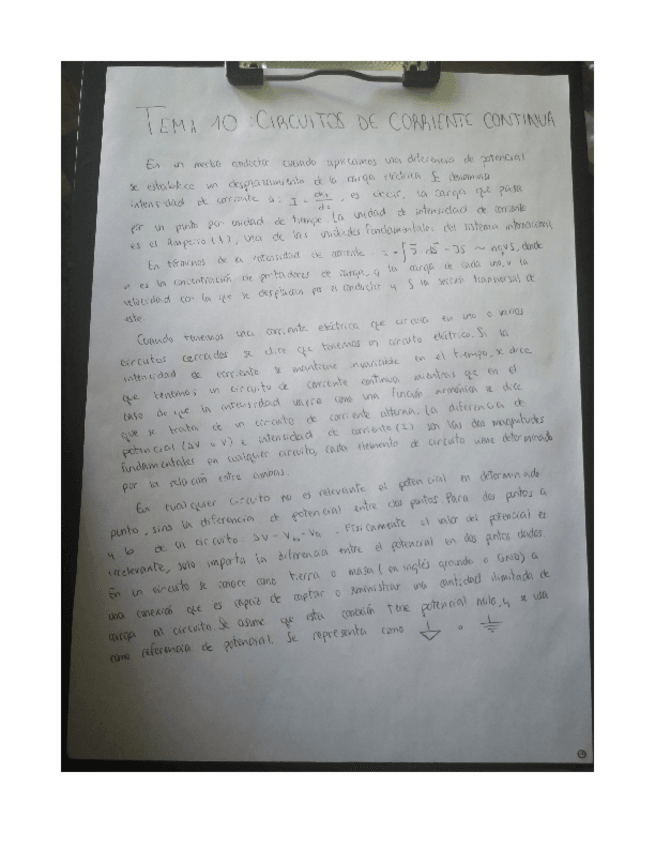 TEMA 10: CIRCUITOS DE CORRIENTE CONTINUA
En un medio conductor cuando aplicamos una diferencia de potencial
se establece un desplazamiento de la carga eléctrica. Se denomina
intensidad de corriente a: I = dq/dt, es decir, la carga que pasa
por un punto por unidad de tiempo. La unidad de intensidad de corriente
es el Amperio (A), una de las unidades fundamentales del sistema internacional
En términos de la intensidad de corriente
n es la concentración de portadores de carga, q la carga de cada uno, v la
velocidad con la que se desplazan por el conductor y S la sección transversal de
este.
Cuando tenemos una corriente eléctrica que circula en uno o varios
circuitos cerrados se dice que tenemos un circuito eléctrico. Si la
intensidad de corriente se mantiene invariable en el tiempo, se dice
que tenemos un circuito de corriente continua mientras que en el
caso de que la intensidad varíe como una función armónica se dice
que se trata de un circuito de corriente alterna. La diferencia de
potencial (ΔV o V) e intensidad de corriente (I) son las dos magnitudes
fundamentales en cualquier circuito, cada elemento de circuito viene determinado
por la relación entre ambas.
En cualquier circuito no es relevante el potencial en determinado
punto, sino la diferencia de potencial entre dos puntos. Para dos puntos a
y b de un circuito: ΔV = Vb - Va. Físicamente el valor del potencial es
irrelevante, solo importa la diferencia entre el potencial en dos puntos dados.
En un circuito se conoce como tierra o masa (en inglés ground o GND) a
una conexión que es capaz de captar o suministrar una cantidad ilimitada de
carga al circuito. Se asume que esta conexión tiene potencial nulo, y se usa
como referencia de potencial. Se representa como o